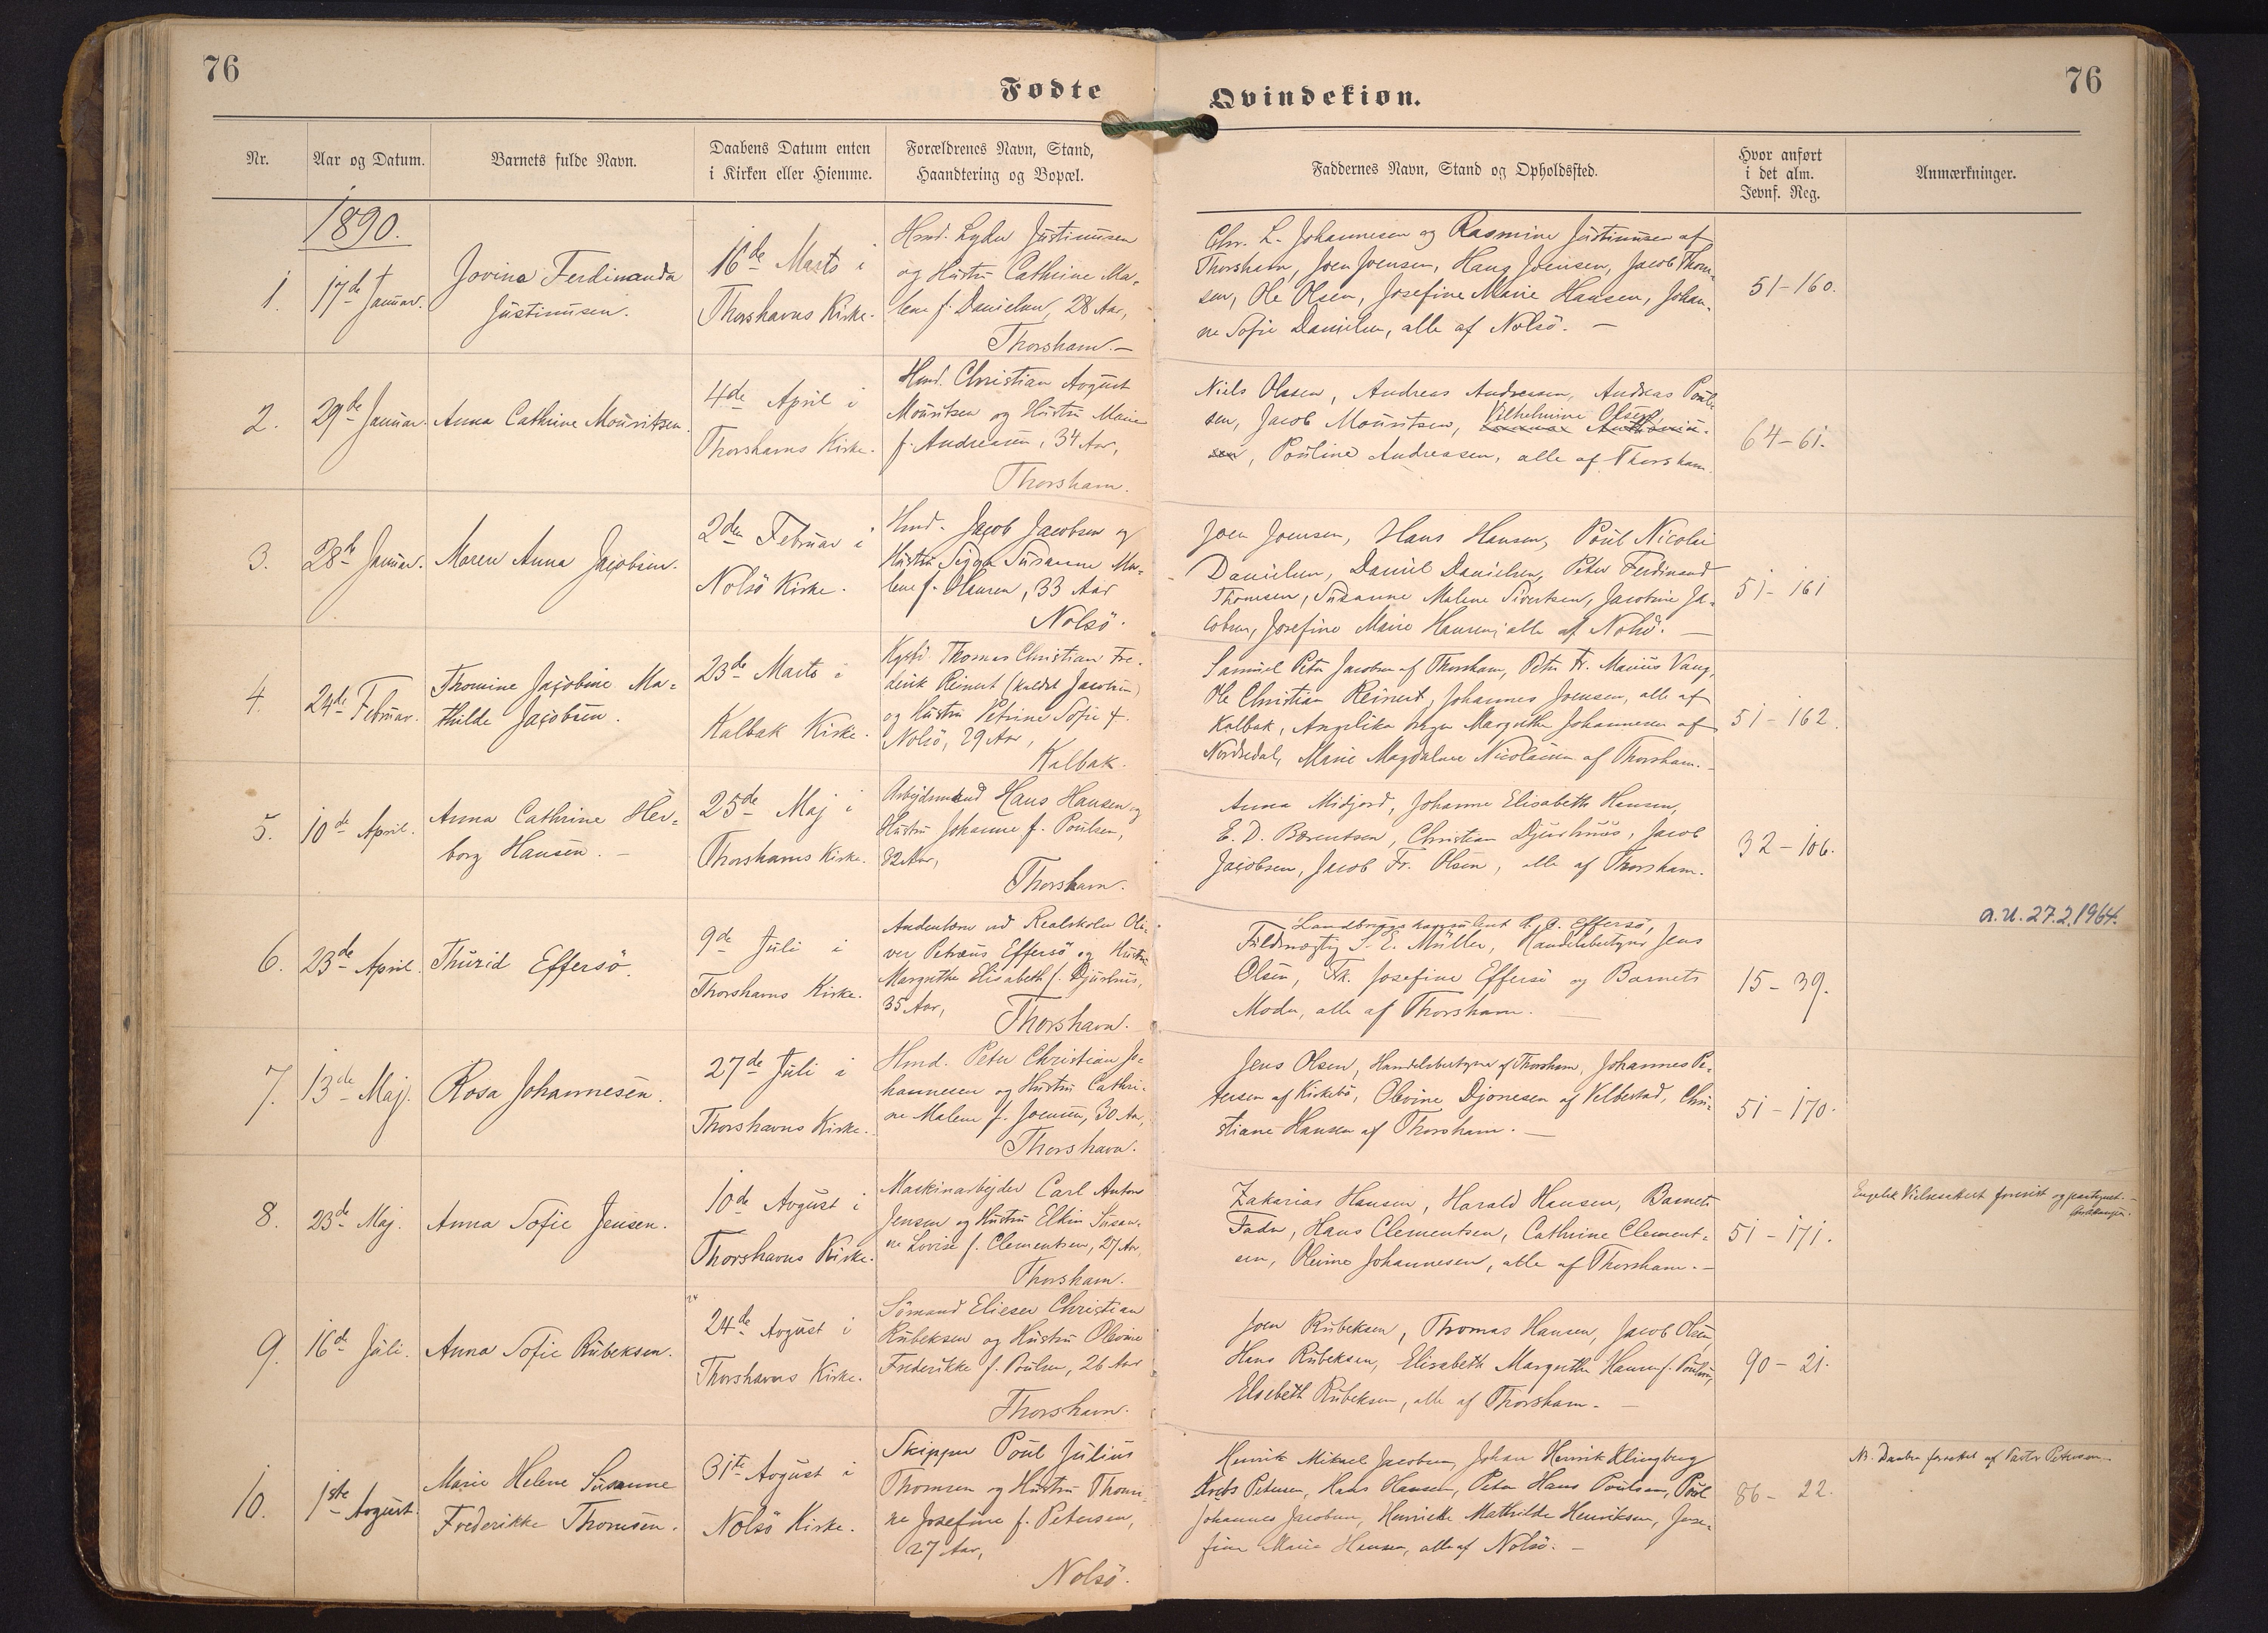 76
76
Fødte
Qvindekiøn.
Nr.
Aar og Datum.
Barnets fulde Navn.
Daabens Datum enten
i Kirken eller Hiemme.
Forældrenes Navn, Stand,
Haandtering og Bopæl.
Faddernes Navn, Stand og Opholdssted.
Hvor anført
i det alm.
Jevnf. Reg.
Anmærkninger.
1890.
1.
17de Januar.
Jovina Ferdinanda
Justinussen.
16de Marts i
Thorshavns Kirke.
Hmd. Lyder Justinussen
og Hustru Cathrine Ma-
lene f. Danielsen, 28 Aar,
Thorshavn.
Chr. L. Johannesen og Rasmine Justinussen af
Thorshavn, Joen Joensen, Hans Joensen, Jacob Thom-
sen, Ole Olsen, Josefine Marie Hansen, Johan-
ne Sofie Danielsen, alle af Nolsö.
51-160.
2.
29de Januar.
Anna Cathrine Mouritsen.
4de April i
Thorshavns Kirke.
Hmd. Christian August
Mouritsen og Hustru Marie
f. Andreasen, 34 Aar,
Thorshavn.
Niels Olsen, Andreas Andreasen, Andreas Poul-
Vilhelmine Olsen,
sen, Jacob Mouritsen,
, Pouline Andreasen, alle af Thorshavn.
64-61.
3.
28de Januar.
Maren Anna Jacobsen.
2den Februar i
Nolsö Kirke.
Hmd. Jacob Jacobsen og
Hustru Susanne Ma-
lene f. Hansen, 33 Aar
Nolsö.
Joen Joensen, Hans Hansen, Poul Nicolai
Danielsen, Daniel Danielsen, Peter Ferdinand
Thomsen, Susanne Malene Sivertsen, Jacobine Ja-
cobsen, Josefine Marie Hansen, alle af Nolsö.
51-161
4.
24de Februar.
Thomine Jacobine Ma-
thilde Jacobsen.
23de Marts i
Kalbak Kirke.
Thomas Christian Fre-
derik Reinert (kaldet Jacobsen)
og Hustru Petrine Sofie f.
Nolsö, 29 Aar,
Kalbak.
Samuel Peter Jacobsen af Thorshavn, Peter Fr. Marius Vang,
Ole Christian Reinert, Johannes Joensen, alle af
Kalbak, Angelika Margrethe Johannesen af
Nordredal, Marie Magdalene Nicolaisen af Thorshavn.
51-162.
5.
10de April.
Anna Cathrine Her-
borg Hansen.
25de Maj i
Thorshavns Kirke.
Arbejdsmand Hans Hansen og
Hustru Johanne f. Poulsen,
32 Aar,
Thorshavn.
Anna Midjord, Johanne Elisabeth Hansen,
E. D. Bærentsen, Christian Djurhuus, Jacob
Jacobsen, Jacob Fr. Olsen, alle af Thorshavn.
32-106.
6.
23de April.
Thurid Effersö.
9de Juli i
Thorshavns Kirke.
Andenlærer ved Realskolen Oli-
ver Petræus Effersö og Hustru
Margrethe Elisabeth f. Djurhuus,
35 Aar,
Thorshavn.
Landbrugskonsulent R. C. Effersö,
Fuldmægtig S. E. Müller, Handelsbestyrer Jens
Olsen, Frk. Josefine Effersö og Barnets
Moder, alle af Thorshavn.
15-39.
a.u. 27.2.1964.
7.
13de Maj.
Rosa Johannesen.
27de Juli i
Thorshavns Kirke.
Hmd. Peter Christian Jo-
hannesen og Hustru Cathri-
ne Malene f. Joensen, 30 Aar,
Thorshavn.
Jens Olsen, Handelsbestyrer af Thorshavn, Johannes Pe-
tersen af Kirkebö, Olevine Djonesen af Velbestad, Chri-
stiane Hansen af Thorshavn.
51-170.
8.
23de Maj.
Anna Sofie Jensen.
10de August i
Thorshavns Kirke.
Maskinarbejder Carl Anton
Jensen og Hustru Elkin Susan-
ne Lovise f. Clementsen, 27 Aar,
Thorshavn.
Zakarias Hansen, Harald Hansen, Barnets
Fader, Hans Clementsen, Cathrine Clement-
sen, Olevine Johannesen, alle af Thorshavn.
51-171.
Engelsk Vielsesattest forevist og
9.
16de Juli.
Anna Sofie Rubeksen.
24de August i
Thorshavns Kirke.
Sömand Elieser Christian
Rubeksen og Hustru Olevine
Frederikke f. Poulsen, 26 Aar
Thorshavn.
Joen Rubeksen, Thomas Hansen, Jacob Olsen,
Hans Rubeksen, Elisabeth Margrethe Hansen f. Poulsen,
Elsebeth Rubeksen, alle af Thorshavn.
90-21.
10.
1ste August.
Marie Helene Susanne
Frederikke Thomsen.
31te August i
Nolsö Kirke.
Skipper Poul Julius
Thomsen og Hustru Thomi-
ne Josefine f. Petersen,
27 Aar,
Nolsö.
Henrik Mikael Jacobsen, Johan Henrik Klingberg
Petersen, Hans Hansen, Peter Hans Poulsen, Poul
Johannes Jacobsen, Henriette Mathilde Henriksen, Jose-
fine Marie Hansen, alle af Nolsö.
86-22.
NB. Daaben forrettet af Pastor Petersen